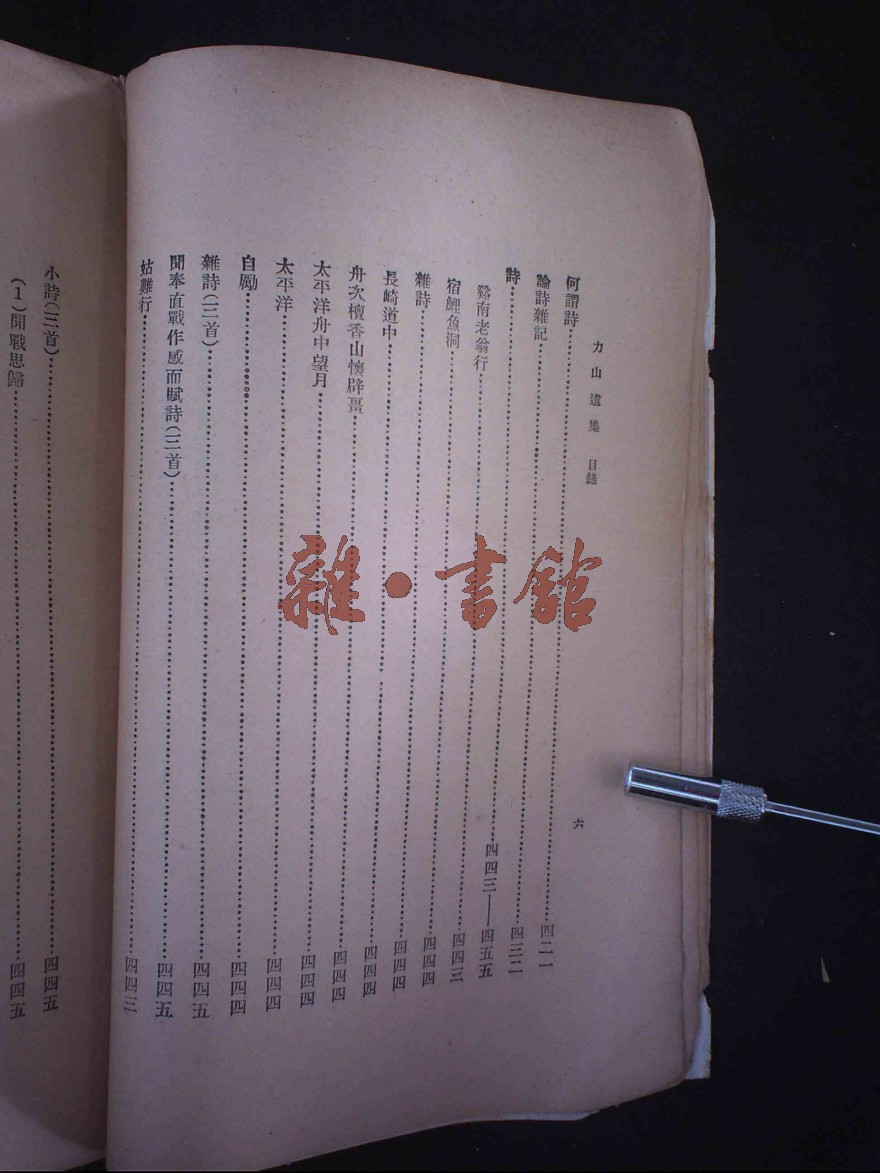 力山遺集 目錄 六
何謂詩……四二一
論詩雜記……四三二
詩……四四三——四五五
谿南老翁行……四四三
宿鯉魚洞……四四四
雜詩……四四四
長崎道中……四四四
舟次檀香山懷辟畺……四四四
太平洋舟中望月……四四四
太平洋……四四四
自勵……四四四
雜詩(三首)……四四五
聞奉直戰作感而賦詩(三首)……四四五
姑難行……四四三
小詩(三首)……四四五
(1)聞戰思歸……四四五
雜·書館